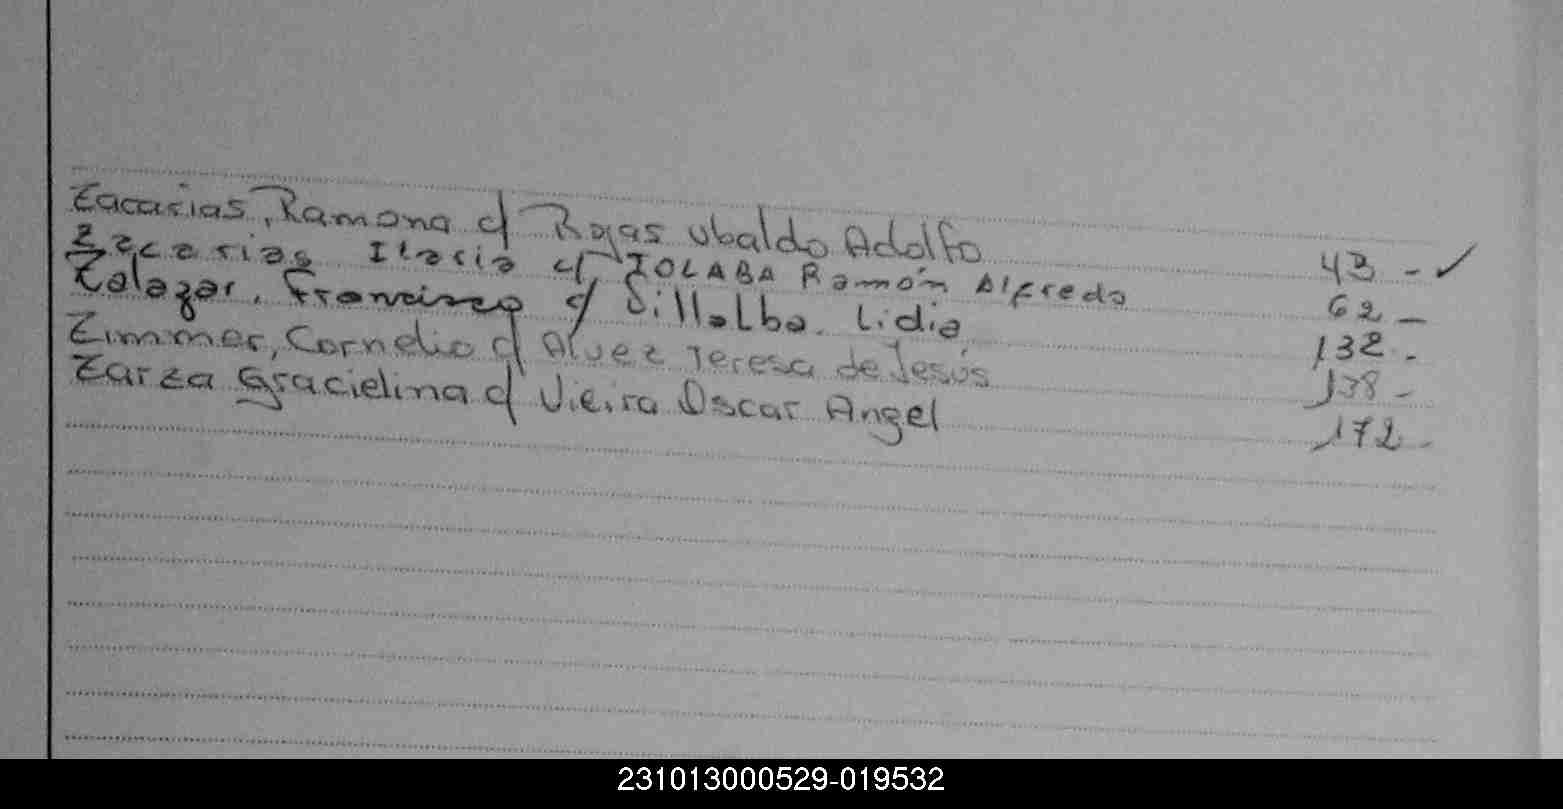 Zacarias, Ramona c/ Rojas Ubaldo Adolfo 43 - ✓
Zacarias Ilaria c/ ZOLABA Ramón Alfredo 62 -
Zalazar, Francisco c/ Villalba Lidia 132 -
Zimmer, Cornelio c/ Alvez Teresa de Jesús 138 -
Zarza Gracielina c/ Vieira Oscar Angel 172 -
231013000529-019532